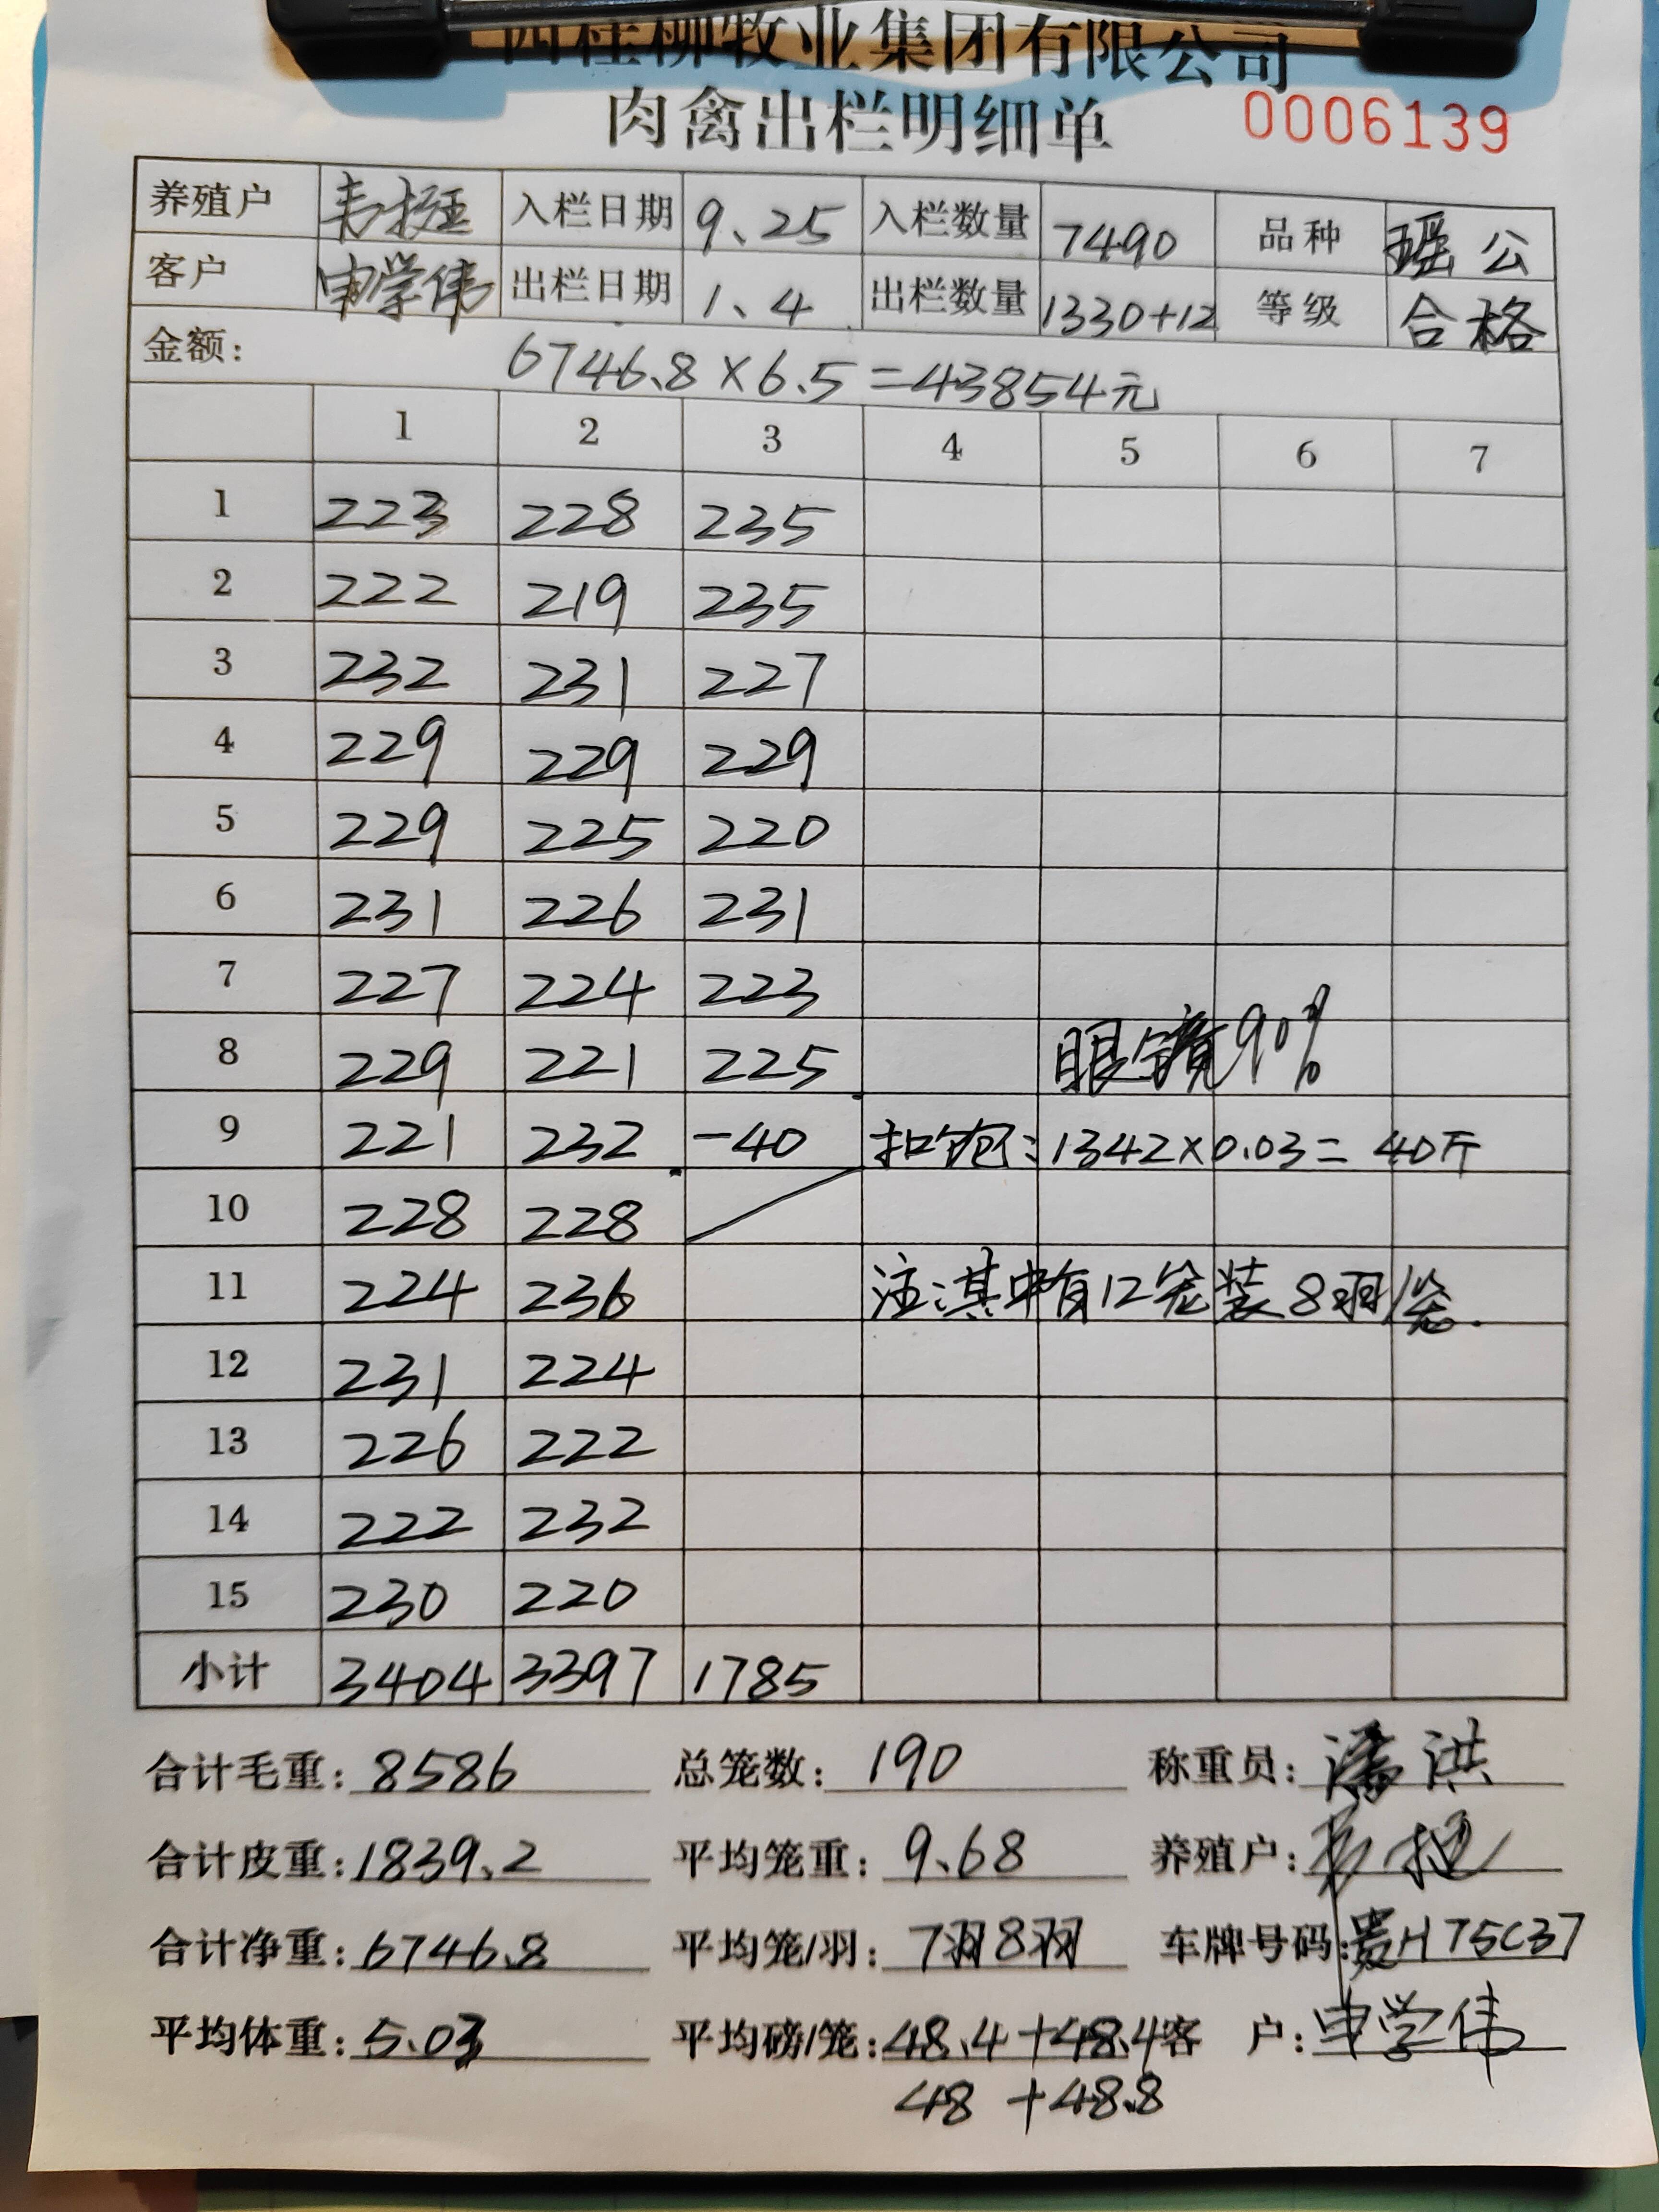 西桂柳牧业集团有限公司
肉禽出栏明细单 0006139
养殖户 韦 入栏日期 9、25 入栏数量 7490 品种 瑶公
客户 申学伟 出栏日期 1、4 出栏数量 1330+12 等级 合格
金额: 6746.8×6.5=43854元
1 2 3 4 5 6 7
1 223 228 235
2 222 219 235
3 232 231 227
4 229 229 229
5 229 225 220
6 231 226 231
7 227 224 223
8 229 221 225 眼镜90%
9 221 232 -40 扣饱:1342×0.03=40斤
10 228 228
11 224 236 注:其中有12笼装8羽/笼.
12 231 224
13 226 222
14 222 232
15 230 220
小计 3404 3397 1785
合计毛重: 8586 总笼数: 190 称重员: 潘洪
合计皮重: 1839.2 平均笼重: 9.68 养殖户: 韦
合计净重: 6746.8 平均笼/羽: 7羽8羽 车牌号码: 贵H75C37
平均体重: 5.03 平均磅/笼: 48.4+48.4 客 户: 申学伟
48 +48.8